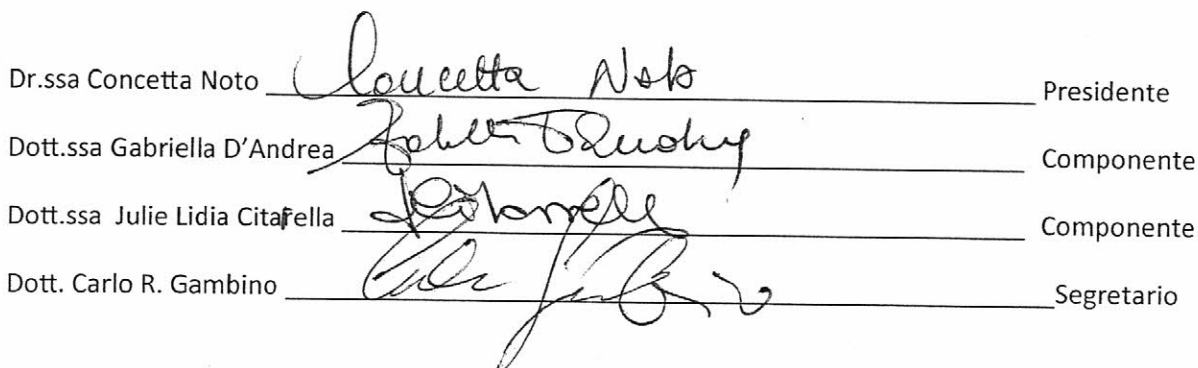 Dr.ssa Concetta Noto Concetta Noto Presidente
Dott.ssa Gabriella D'Andrea Componente
Dott.ssa Julie Lidia Citarella Componente
Dott. Carlo R. Gambino Segretario